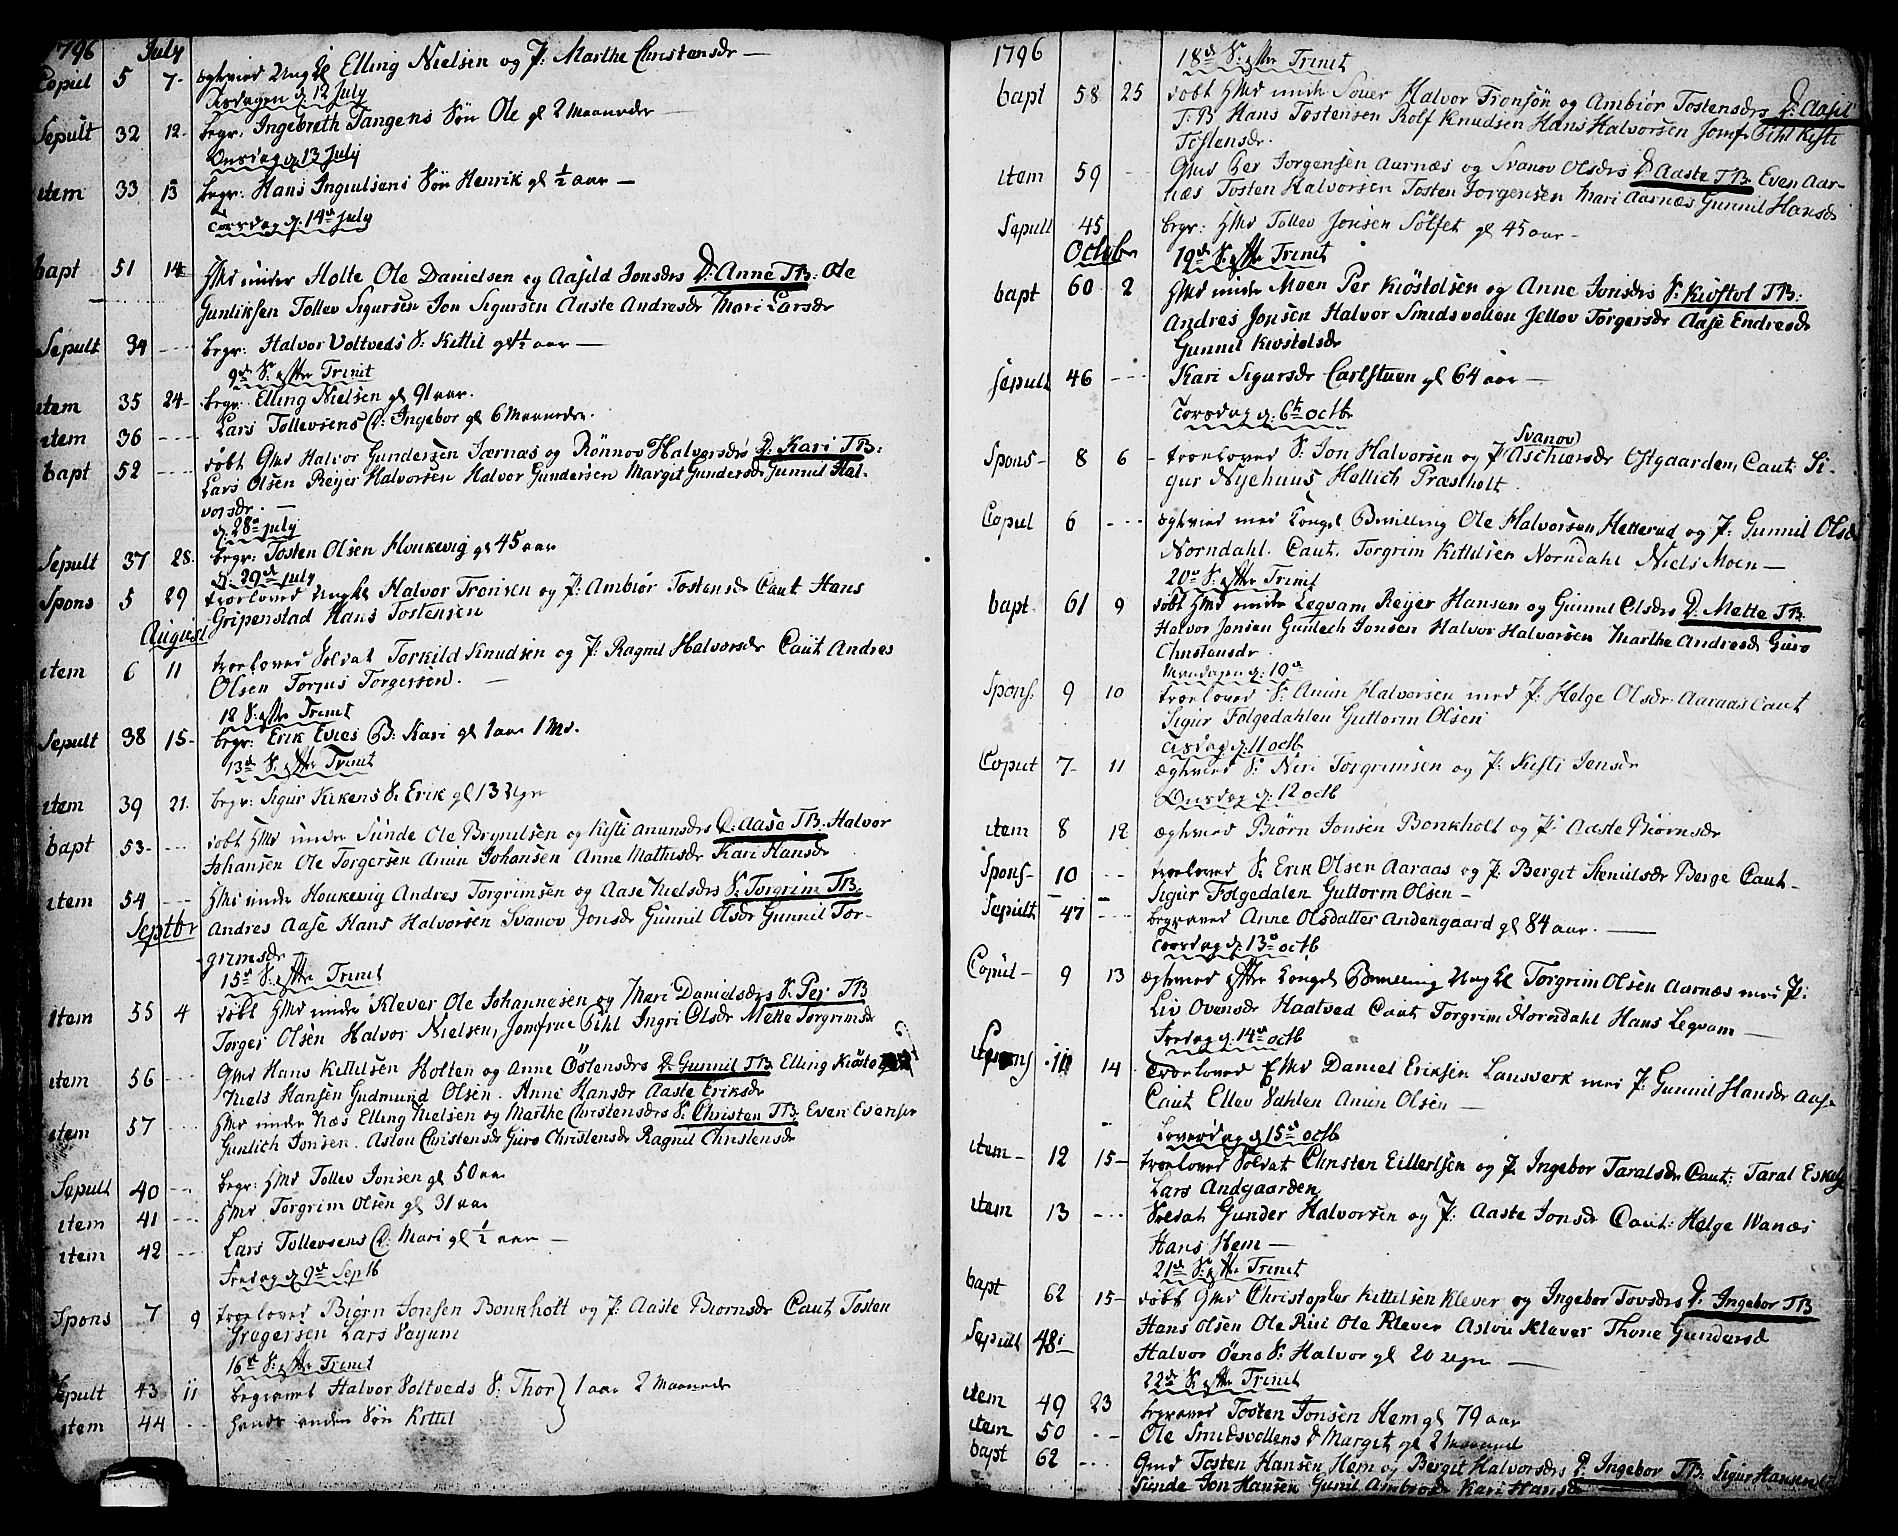 1796 July
Copul 5 7 ægteviet Ungkl Elling Nielsen og P: Marthe Christensdr
Tisdagen d. 12 July
Sepult 32 12 begr: Ingebreth Tangens Søn Ole gl 2 Maaneder
Onsdag d. 13 July
item 33 13 begr: Hans Ingiulsens Søn Henrik gl ½ aar
Torsdag d. 14de July
bapt 51 14 Hmd under Holte Ole Danielsen og Aasild Jonsdrs D: Anne TB: Ole
Gunliksen Tollev Sigursen Jon Sigursen Aaste Andresdr Mari Larsdr
Sepult 34 begr: Halvor Voltveds S: Kittil gl aar
9de S. efter Trinit
item 35 24 begr. Elling Nielsen gl 91 aar.
item 36 Lars Tollevsens D: Ingebor gl 6 Maaneder.
bapt 52 døbt Gmd Halvor Gundersen Jærnæs og Rønnov Halvorsdrs D. Kari TB:
Lars Olsen Reijer Halvorsen Halvor Gundersen Margit Gundersdr Gunnil Hal-
vorsdr.
d. 28de july
Sepult 37 28. begr: Tosten Olsen Houkevig gl 45 aar
d. 29de july
Spons 5 29 trolovet Ungkl Halvor Tronsen og P: Ambiør Tostensdr Caut Hans
Gripenstad Hans Tostensen
August
item 6 11 trolovet Soldat Torkild Knudsen og P: Ragnil Halvorsdr Caut Andres
Olsen Torjus Torgersen.
12 S: efter Trinit
Sepult 38 15 begr: Erik Evies D: Kari gl 1 aar 1 Md.
13de S. efter Trinit
item 39 21. begr: Sigur Kikens S. Erik gl 13 Uger
bapt 53 døbt Hmd under Sunde Ole Brynulsen og Kisti Anunsdrs D. Aase TB. Halvor
Johansen Ole Torgersen Anun Johansen Anne Mathisdr Kari Hansdr
item 54 Hmd under Houkevig Andres Torgrimsen og Aase Nielsdrs S: Torgrim TB.
Septbr Andres Aase Hans Halvorsen Svanov Jonsdr Gunnil Olsdr Gunnil Tor-
grimsdr
15de S. efter Trinit
item 55 4 døbt Hmd under Klever Ole Johannesen og Mari Danielsdrs S. Per TB
Torger Olsen Halvor Nielsen, Jomfrue Pihl Ingri Olsdr Mette Torgrimsdr
item 56 Gmd Hans Kittilsen Holten og Anne Östensdrs D. Gunnil TB Elling
Niels Hansen Gudmund Olsen. Anne Hansdr Aaste Eriksdr
item 57 Hmd under Næs Elling Nielsen og Marthe Christensdrs S. Christen TB. Even Evensen
Gunlich Jonsen. Aslou Christensdr Guro Christensdr Ragnil Christensdr
Sepult 40 begr: Hmd Tollev Jonsen gl 50 aar
item 41 Hmd Torgrim Olsen gl 31 aar
item 42 Lars Tollevsens D: Mari gl ½ aar
Fredag d 9de Sep
Spons 7 9 trolovet Biørn Jonsen Bonkholt og P: Aaste Biornsdr Caut Tosten
Grogersen Lars Vayum
16de S: efter Trinit
Sepult 43 11 begravet Halvor Voltveds S: Thor } 1 aar 2 Maaneder
item 44 hands anden Søn Kittil
1796 18de S: efter Trinit
bapt 58 25 døbt Hmd under Soner Halvor Tronsön og Ambiør Tostensdrs D. Aasil
T: B Hans Tostensen Rolf Knudsen Hans Halvorsen Jomf: Pihl Kisti
Tostensdr.
item 59 Gmd Per Jorgensen Aarnæs og Svanov Olsdrs D Aaste TB. Even Aar-
næs Tosten Halvorsen Tosten Jorgensen Mari Aarnæs Gunnil Hansdr
Sepult 45 begr: Hmd Tollev Jonsen Solset gl 45 aar
October 19de S: efter Trinit
bapt 60 2 Hmd under Moen Per Kiøstolsen og Anne Jonsdrs S. Kiøstol TB:
Andres Jonsen Halvor Smedsvollen Jellov Torgersdr Aase Endresdr
Gunnil Kiostolsdr
Sepult 46 Kari Sigursdr Carlstuen gl 64 aar
Torsdag d. 6te octb
Spons 8 6 trolovet S. Jon Halvorsen og P. Svanov Aschiersdr Ostgaarden, Caut: Si-
gur Nyehuus Hellich Præstholt
Copul 6 ægteviet med Kongel Bevilling Ole Halvorsen Hetterud og P: Gunnil Olsdr
Norndahl. Caut. Torgrim Kittilsen Norndahl Niels Moen
20de S: efter Trinit
bapt 61 9 døbt Hmd under Leqvam Reijer Hansen og Gunnil Olsdrs D: Mette TB:
Halvor Jonsen Gunlech Jonsen Halvor Halvorsen Marthe Andresdr Guro
Christensdr
Mandagen d. 10de
Spons 9 10 trolovet S: Anun Halvorsen med P: Helge Olsdr Aaraas Caut
Sigur Folgedahlen Guttorm Olsen
Tisdag d. 11 octb
Copul 7 11 ægteviet S: Neri Torgrimsen og P: Kisti Jensdr
Onsdag d. 12 octb
item 8 12 ægteviet Biørn Jonsen Bonkholt og P: Aaste Biørnsdr
Spons 10 trolovet S. Erik Olsen Aaraas og P: Bergit Stenulsdr Berge Caut
Sigur Folgedalen Guttorm Olsen
Sepult 47 begravet Anne Olsdatter Andengaard gl 84 aar.
Torsdag d: 13de octb
Copul 9 13 ægteviet efter Kongel Bevilling Ungkl Torgrim Olsen Aarnæs med P:
Liv Ovensdr Haatved Caut Torgrim Norndahl Hans Leqvam
Fredag d. 14de octb
Spons 11 14 trolovet Emd Daniel Eriksen Lansverk med P: Gunnil Hansdr Aase
Caut Ellev Dahlen Anun Olsen
Löverdag d 15de octb
item 12 15 trolovet Soldat Christen Eillertsen og P. Ingebor Taralsdr Caut: Taral
Lars Andgaarden
item 13 Soldat Gunder Halvorsen og P: Aaste Jonsdr Caut: Helge Vanæs
Hans Hem
21de S: efter Trinit
bapt 62 15 døbt Gmd Christopher Kittilsen Klever og Ingebor Tovsdrs D. Ingebor TB
Hans Olsen Ole Riu Ole Klever Aslou Klever Thone Gundersdr
Sepult 48 Halvor Öens S: Halvor gl 20 uger
22de S: efter Trinit
item 49 23 begravet Tosten Jonsen Hem gl 79 aar
item 50 Ole Smedsvollens D Margit gl 2 Maaned
bapt 62 Gmd Tosten Hansen Hem og Bergit Halvorsdrs D. Ingebor TB: Sigur Hansen
Sunde Jon Hansen Gunil Ambrosdr Kari Hansdr